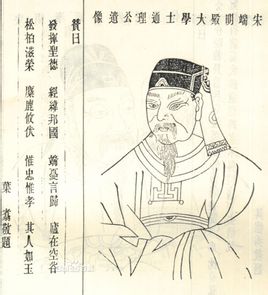 宋端明殿大學士道理公遺像
贊曰
發揮聖德 經緯邦國 言歸 廬在空谷
松柏滋榮 麋鹿攸伏 惟忠惟孝 其人如玉
葉翥敬題